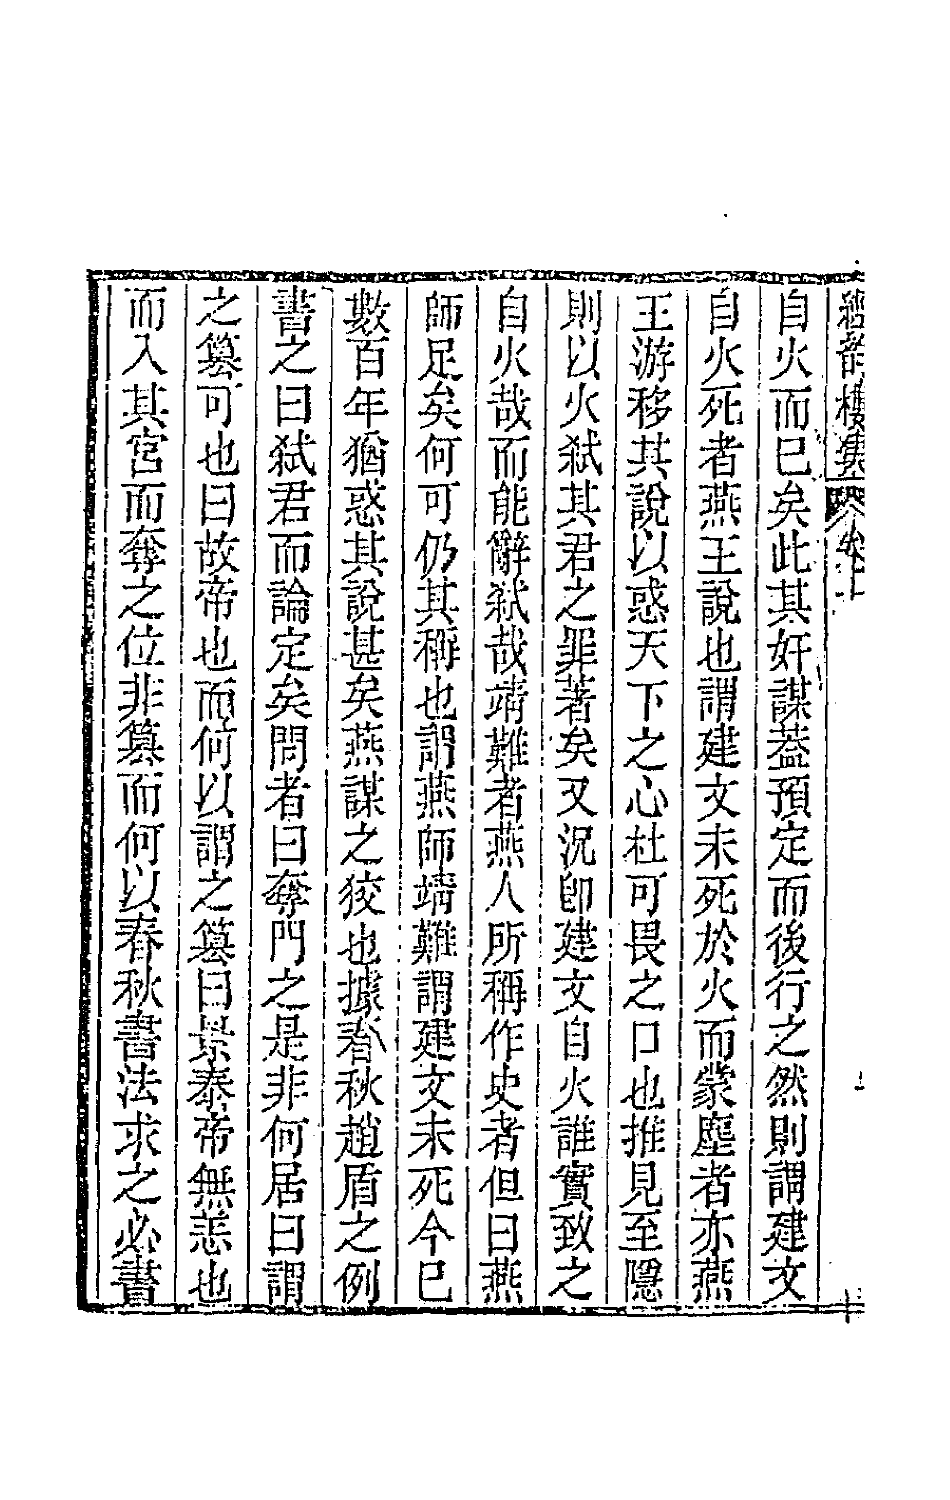 自火而已矣此其奸謀葢預定而後行之然則謂建文
自火死者燕王說也謂建文未死於火而蒙塵者亦燕
王游移其說以惑天下之心杜可畏之口也推見至隱
則以火弑其君之罪著矣又況卽建文自火誰實致之
自火哉而能辭弑哉靖難者燕人所稱作史者但曰燕
師足矣何可仍其稱也謂燕師靖難謂建文未死今已
數百年猶惑其說甚矣燕謀之狡也據春秋趙盾之例
書之曰弑君而論定矣問者曰奪門之是非何居曰謂
之篡可也曰故帝也而何以謂之篡曰景泰帝無恙也
而入其宮而奪之位非篡而何以春秋書法求之必書